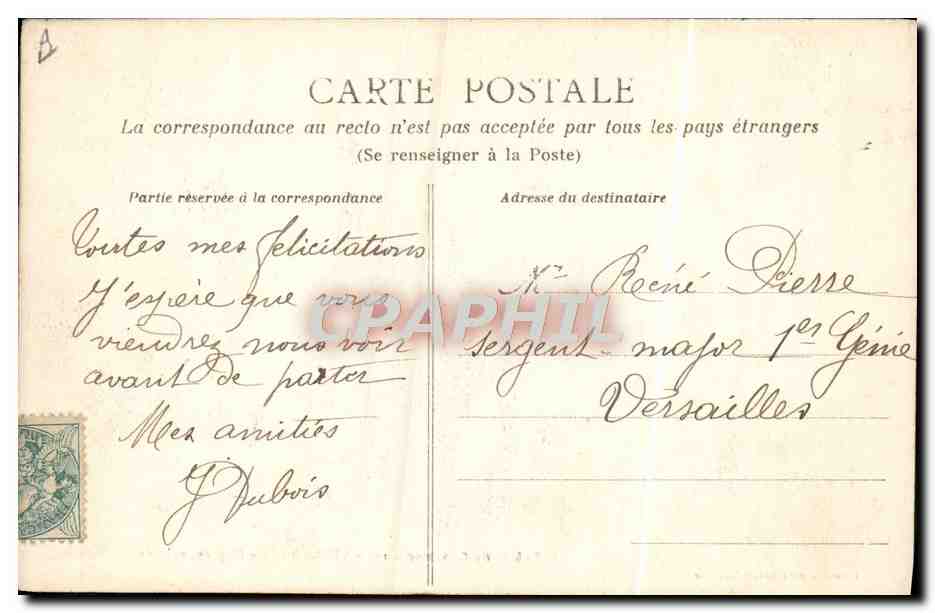 CARTE POSTALE
La correspondance au recto n'est pas acceptée par tous les pays étrangers
(Se renseigner à la Poste)
Partie réservée à la correspondance
Toutes mes félicitations
J'espère que vous
viendrez nous voir
avant de partir
Mes amitiés
J Dubois
Adresse du destinataire
Mr René Pierre
sergent major 1er Génie
Versailles
CPAPHIL